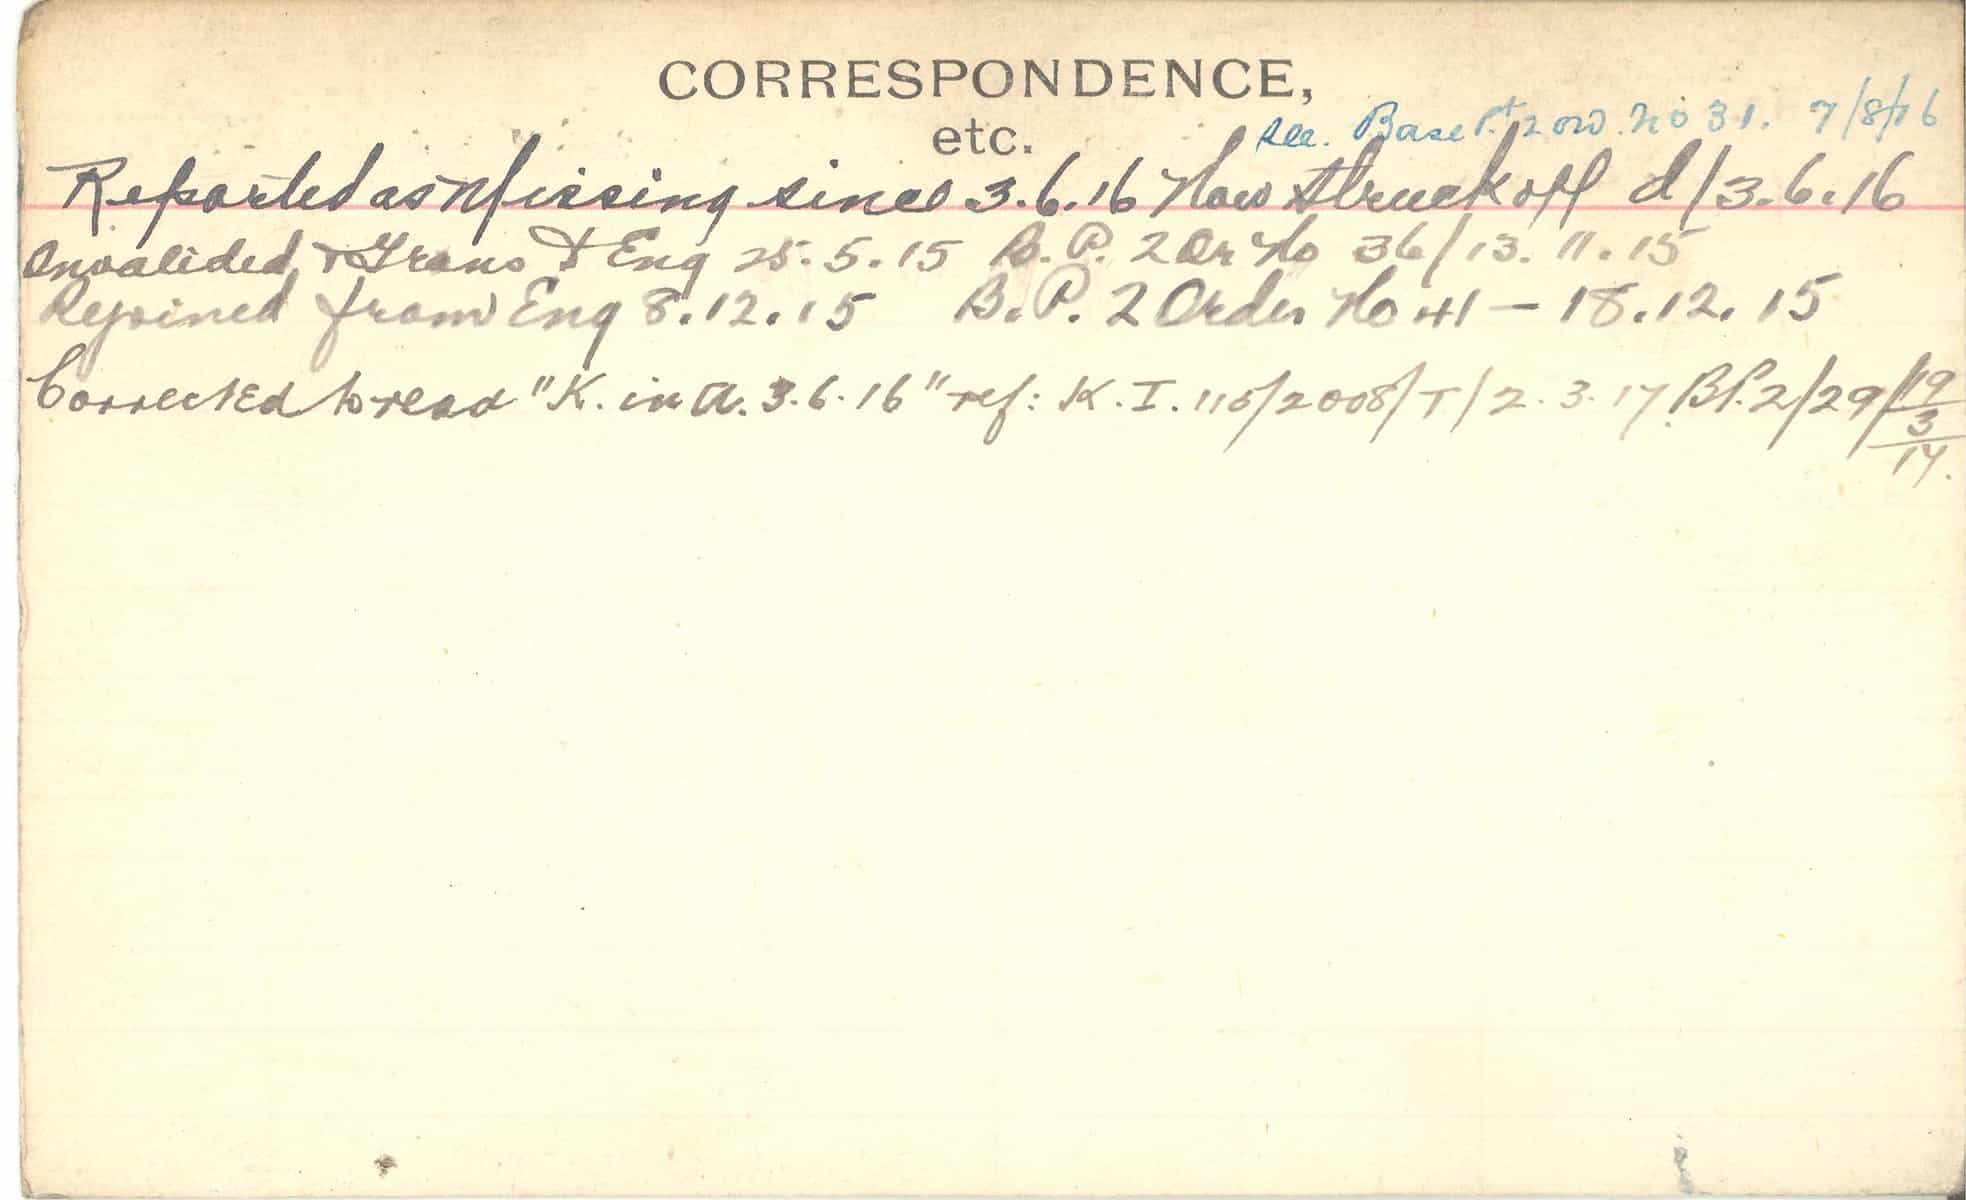 CORRESPONDENCE,
etc.
see. Base Pt 2 ord. No 31. 7/8/16
Reported as Missing since 3.6.16 Now Struck off d/3.6.16
Invalided & Trans to Eng 25.5.15 B.P. 2 Or No 36/13.11.15
Rejoined from Eng 8.12.15 B.P. 2 Order No 41 — 18.12.15
Corrected to read "K. in A. 3.6.16" ref: K.I. 115/2008/T/2.3.17 B.P.2/29/19/3/17.